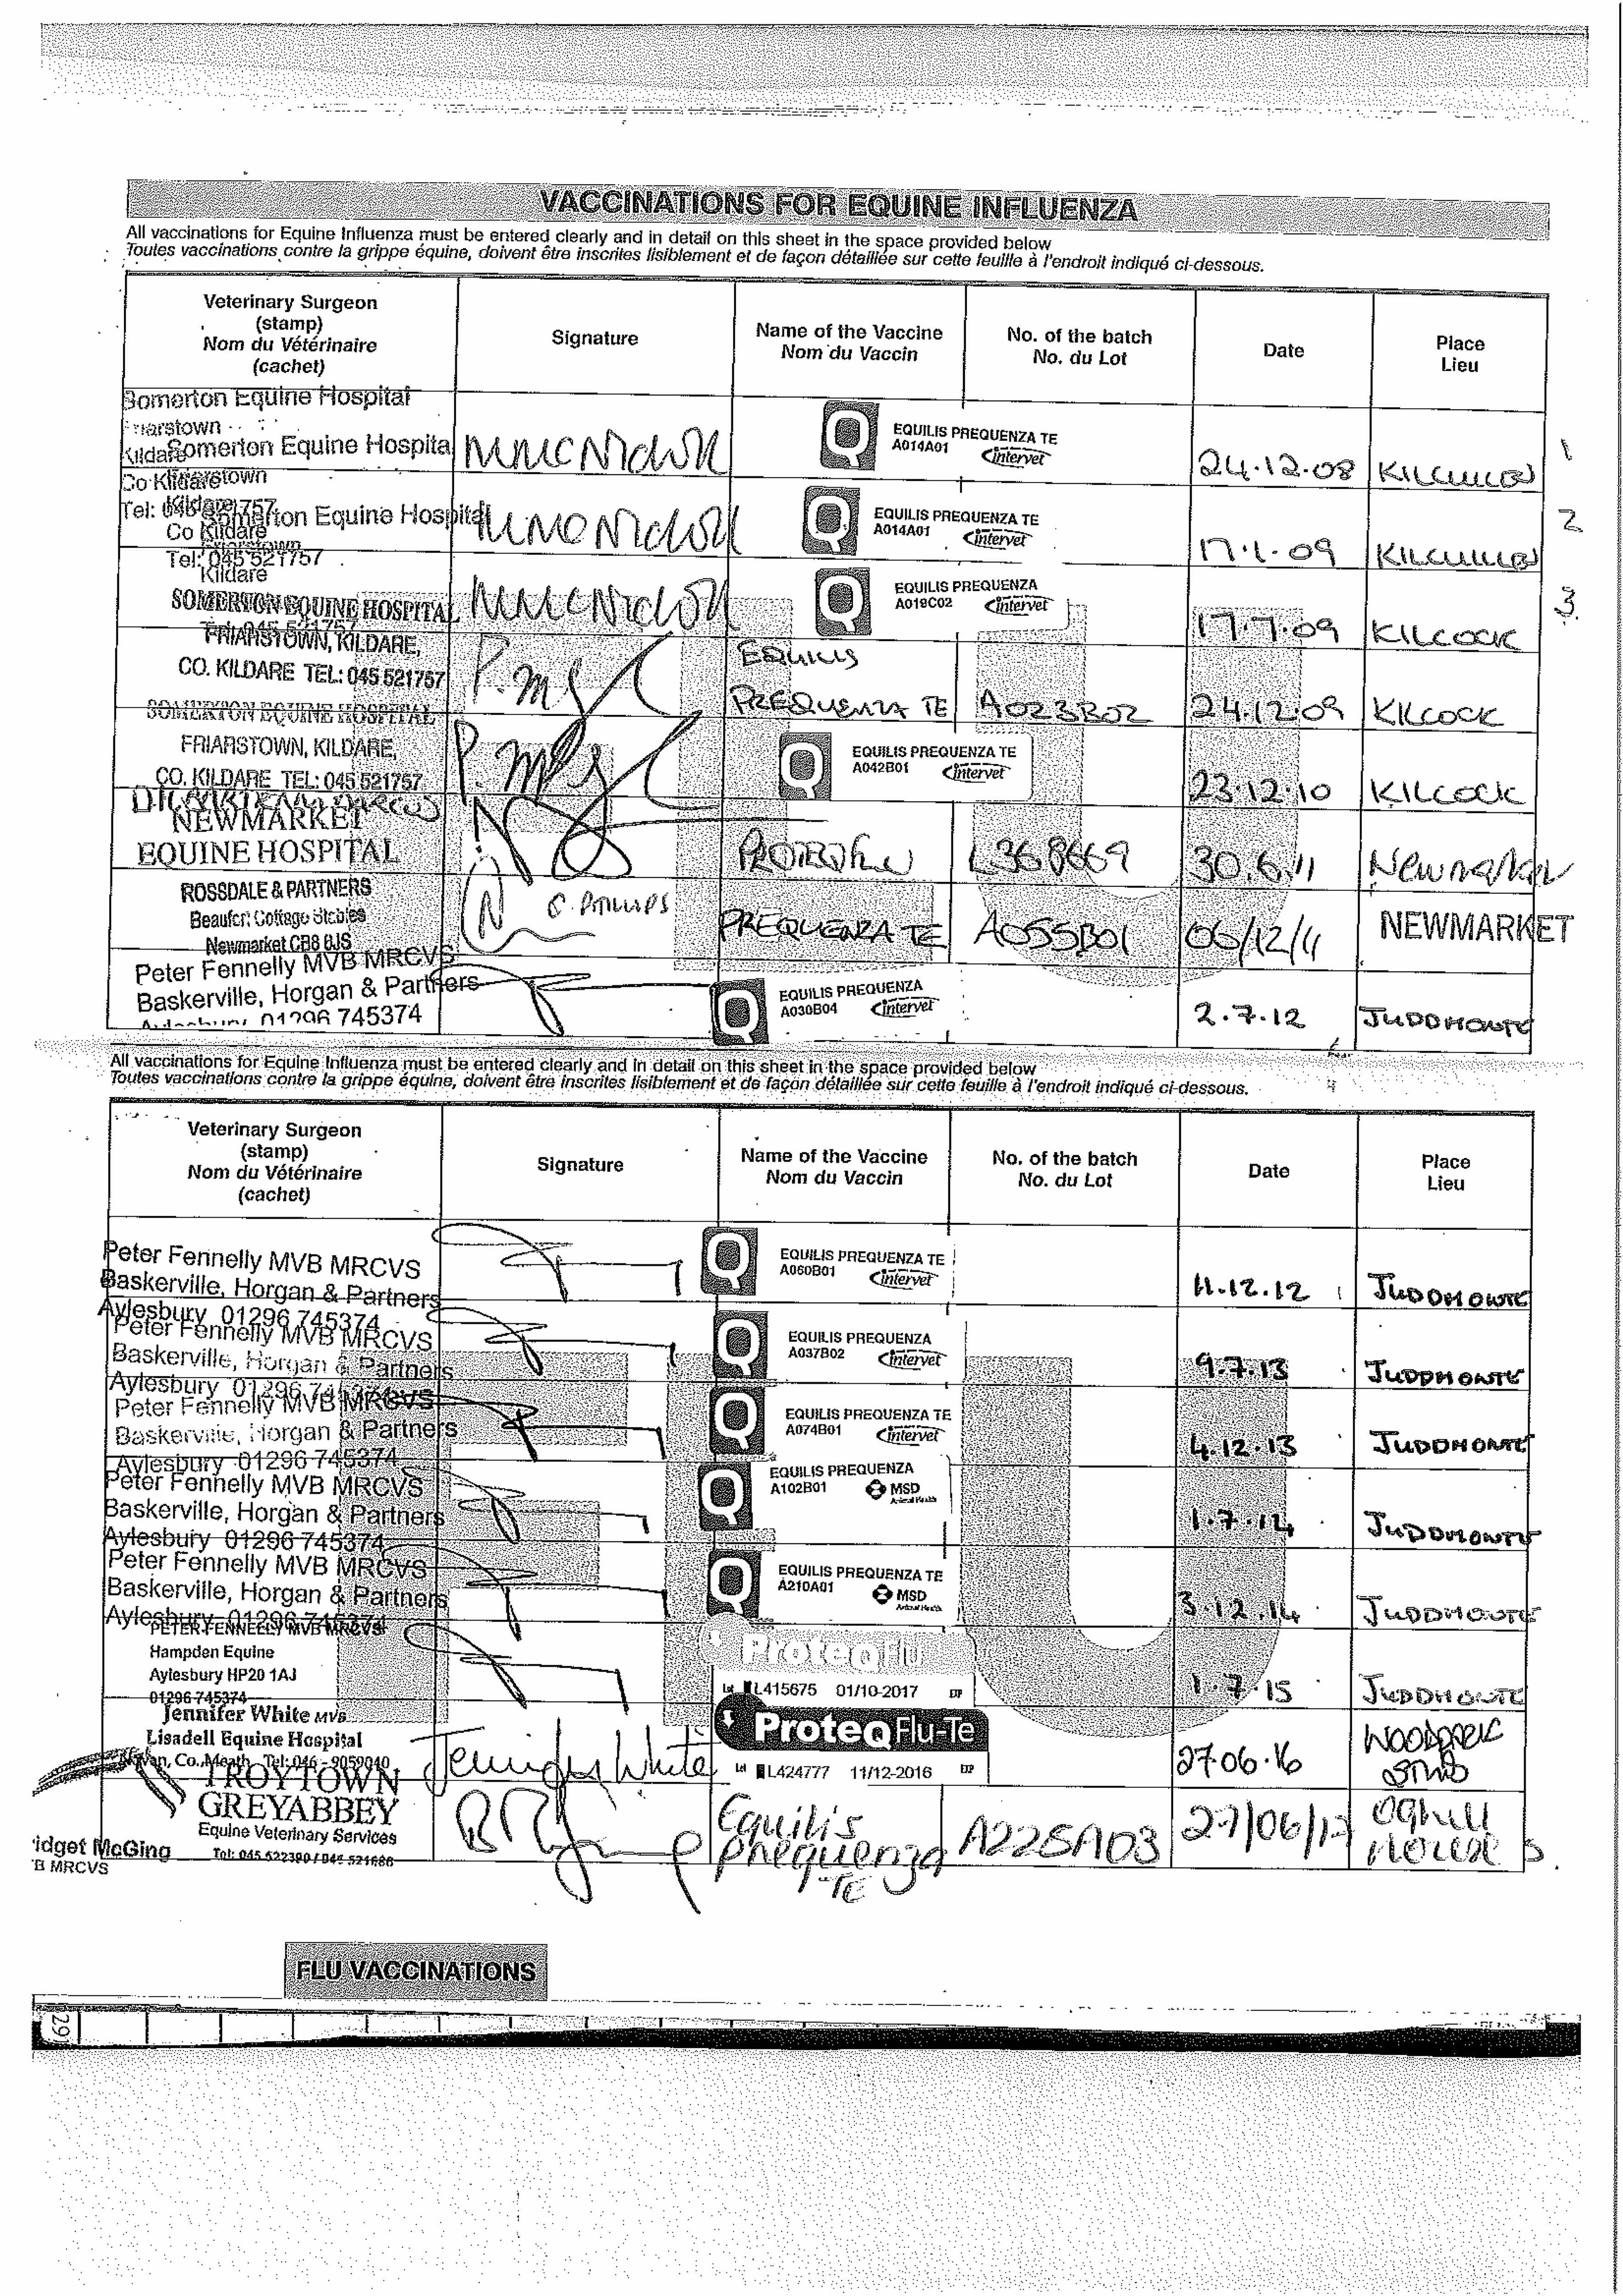 VACCINATIONS FOR EQUINE INFLUENZA
All vaccinations for Equine Influenza must be entered clearly and in detail on this sheet in the space provided below
Toutes vaccinations contre la grippe équine, doivent être inscrites lisiblement et de façon détaillée sur cette feuille à l'endroit indiqué ci-dessous.
Veterinary Surgeon
(stamp)
Nom du Vétérinaire
(cachet)
Signature
Name of the Vaccine
Nom du Vaccin
No. of the batch
No. du Lot
Date
Place
Lieu
Somerton Equine Hospital
Friarstown
Kildare
Co Kildare
EQUILIS PREQUENZA TE
A014A01
Intervet
24.12.08
KILCULLEN
1
Somerton Equine Hospital
Kildare
Co Kildare
Tel: 045 521757
EQUILIS PREQUENZA TE
A014A01
Intervet
17.1.09
KILCULLEN
2
Somerton Equine Hospital
Friarstown
Kildare
EQUILIS PREQUENZA
A019C02
Intervet
17.7.09
KILCOCK
3.
SOMERTON EQUINE HOSPITAL
FRIARSTOWN, KILDARE,
CO. KILDARE TEL: 045 521757
EQUILIS
PREQUENZA TE
A023B02
24.12.09
KILCOCK
SOMERTON EQUINE HOSPITAL
FRIARSTOWN, KILDARE,
CO. KILDARE TEL: 045 521757
EQUILIS PREQUENZA TE
A042B01
Intervet
23.12.10
KILCOCK
NEWMARKET
EQUINE HOSPITAL
PROTEQFLU
L368669
30.6.11
Newmarket
ROSSDALE & PARTNERS
Beaufort Cottage Stables
Newmarket CB8 8JS
C. PHILLIPS
PREQUENZA TE
A055B01
06/12/11
NEWMARKET
Peter Fennelly MVB MRCVS
Baskerville, Horgan & Partners
Aylesbury 01296 745374
EQUILIS PREQUENZA
A030B04
Intervet
2.7.12
JUDDMONTE
All vaccinations for Equine Influenza must be entered clearly and in detail on this sheet in the space provided below
Toutes vaccinations contre la grippe équine, doivent être inscrites lisiblement et de façon détaillée sur cette feuille à l'endroit indiqué ci-dessous.
Veterinary Surgeon
(stamp)
Nom du Vétérinaire
(cachet)
Signature
Name of the Vaccine
Nom du Vaccin
No. of the batch
No. du Lot
Date
Place
Lieu
Peter Fennelly MVB MRCVS
Baskerville, Horgan & Partners
Aylesbury 01296 745374
EQUILIS PREQUENZA TE
A060B01
Intervet
11.12.12
JUDDMONTE
Peter Fennelly MVB MRCVS
Baskerville, Horgan & Partners
Aylesbury 01296 745374
EQUILIS PREQUENZA
A037B02
Intervet
9.7.13
JUDDMONTE
Peter Fennelly MVB MRCVS
Baskerville, Horgan & Partners
Aylesbury 01296 745374
EQUILIS PREQUENZA TE
A074B01
Intervet
4.12.13
JUDDMONTE
Peter Fennelly MVB MRCVS
Baskerville, Horgan & Partners
Aylesbury 01296 745374
EQUILIS PREQUENZA
A102B01
MSD
Animal Health
1.7.14
JUDDMONTE
Peter Fennelly MVB MRCVS
Baskerville, Horgan & Partners
Aylesbury 01296 745374
EQUILIS PREQUENZA TE
A210A01
MSD
Animal Health
3.12.14
JUDDMONTE
PETER FENNELLY MVB MRCVS
Hampden Equine
Aylesbury HP20 1AJ
01296 745374
ProteqFlu
Lot L415675 01/10-2017 EXP
1.7.15
JUDDMONTE
Jennifer White MVB
Lisadell Equine Hospital
Navan, Co. Meath. Tel: 046 - 9059040
Jennifer White
ProteqFlu-Te
Lot L424777 11/12-2016 EXP
27.06.16
WOODPARK
STUD
TROYTOWN
GREYABBEY
Equine Veterinary Services
Tel: 045 522390 / 045 521686
idget McGing
B MRCVS
Equilis
Prequenza
-TE
A225A03
27/06/17
Oghill
House S.
FLU VACCINATIONS
29